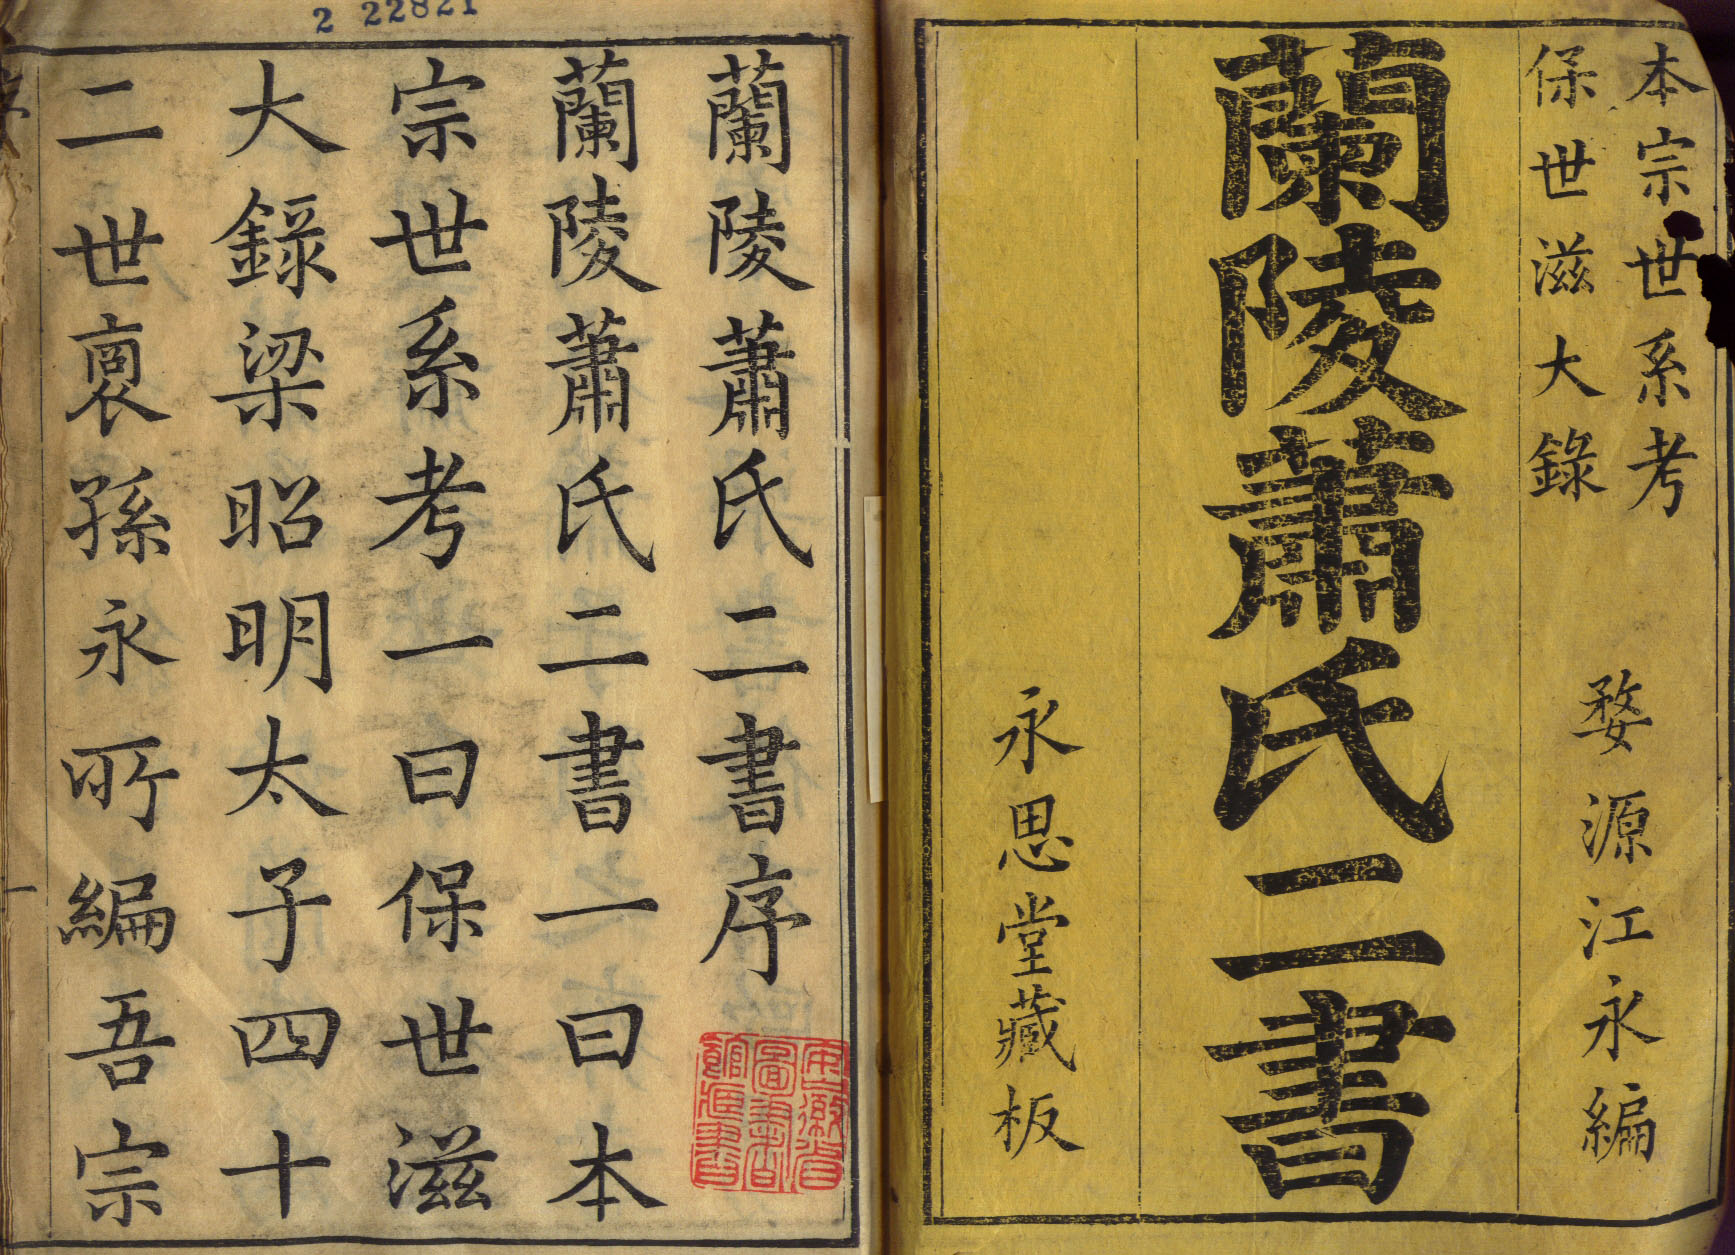 本宗世系考
保世滋大錄
婺源江永編
蘭陵蕭氏二書
永思堂藏板
2 22821
蘭陵蕭氏二書序
蘭陵蕭氏二書一曰本
宗世系考一曰保世滋
大錄梁昭明太子四十
二世裔孫永所編吾宗
安徽省
圖書館
藏書